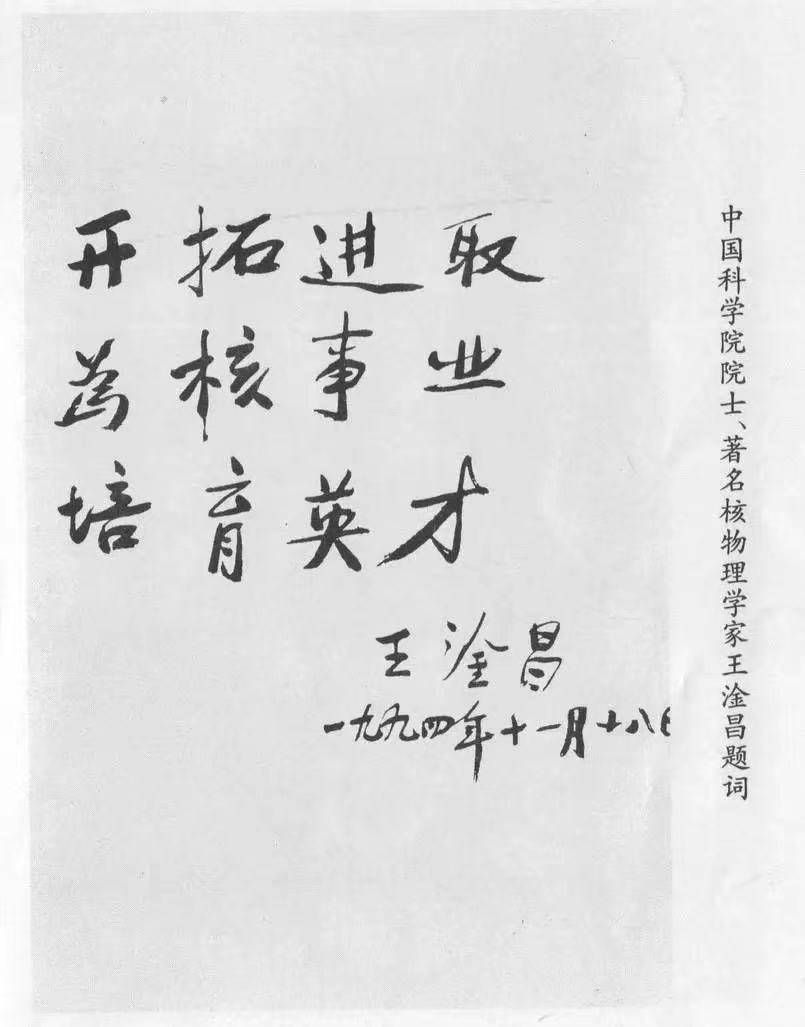 开拓进取
为核事业
培育英才
王淦昌
一九九四年十一月十八日
中国科学院院士、著名核物理学家王淦昌题词